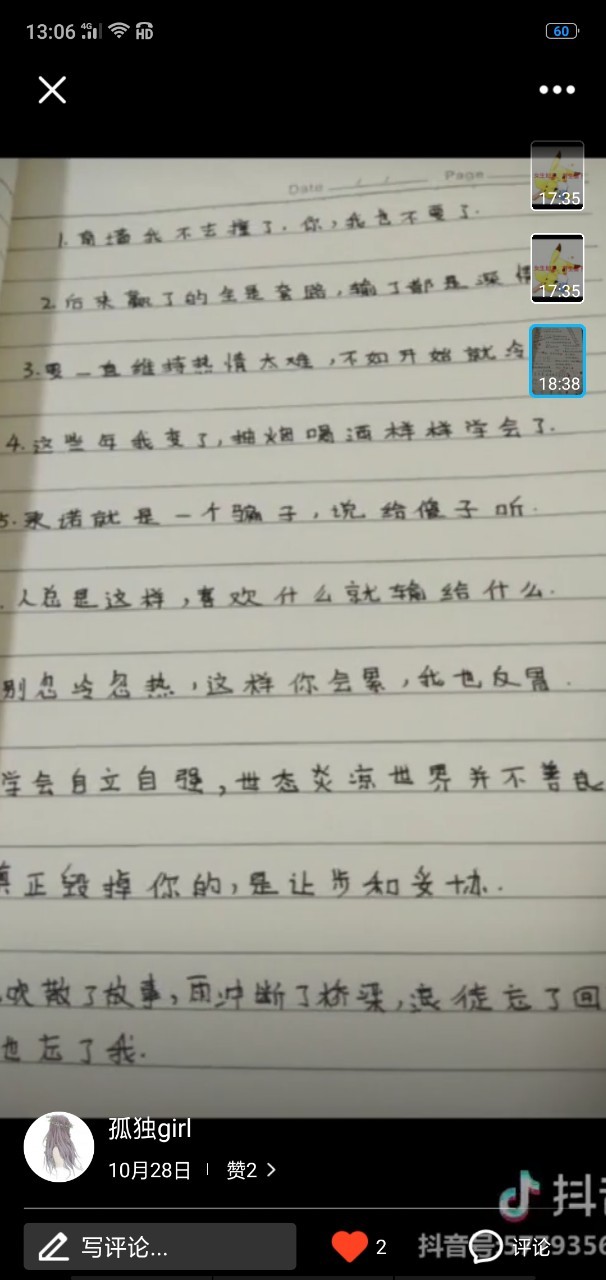 13:06 4G HD 60
Date Page
17:35
1. 南墙我不去撞了.你,我也不要了.
2. 后来赢了的全是套路,输了都是深情
17:35
3. 要一直维持热情太难,不如开始就冷
18:38
4. 这些年我变了,抽烟喝酒样样学会了.
5. 承诺就是一个骗子,说给傻子听.
.人总是这样,喜欢什么就输给什么.
别忽冷忽热,这样你会累,我也反胃.
学会自立自强,世态炎凉世界并不善良
真正毁掉你的,是让步和妥协.
吹散了故事,雨冲断了桥梁,浪徒忘了回
也忘了我.
孤独girl
10月28日 赞2
抖音
写评论... 2 评论
抖音号: